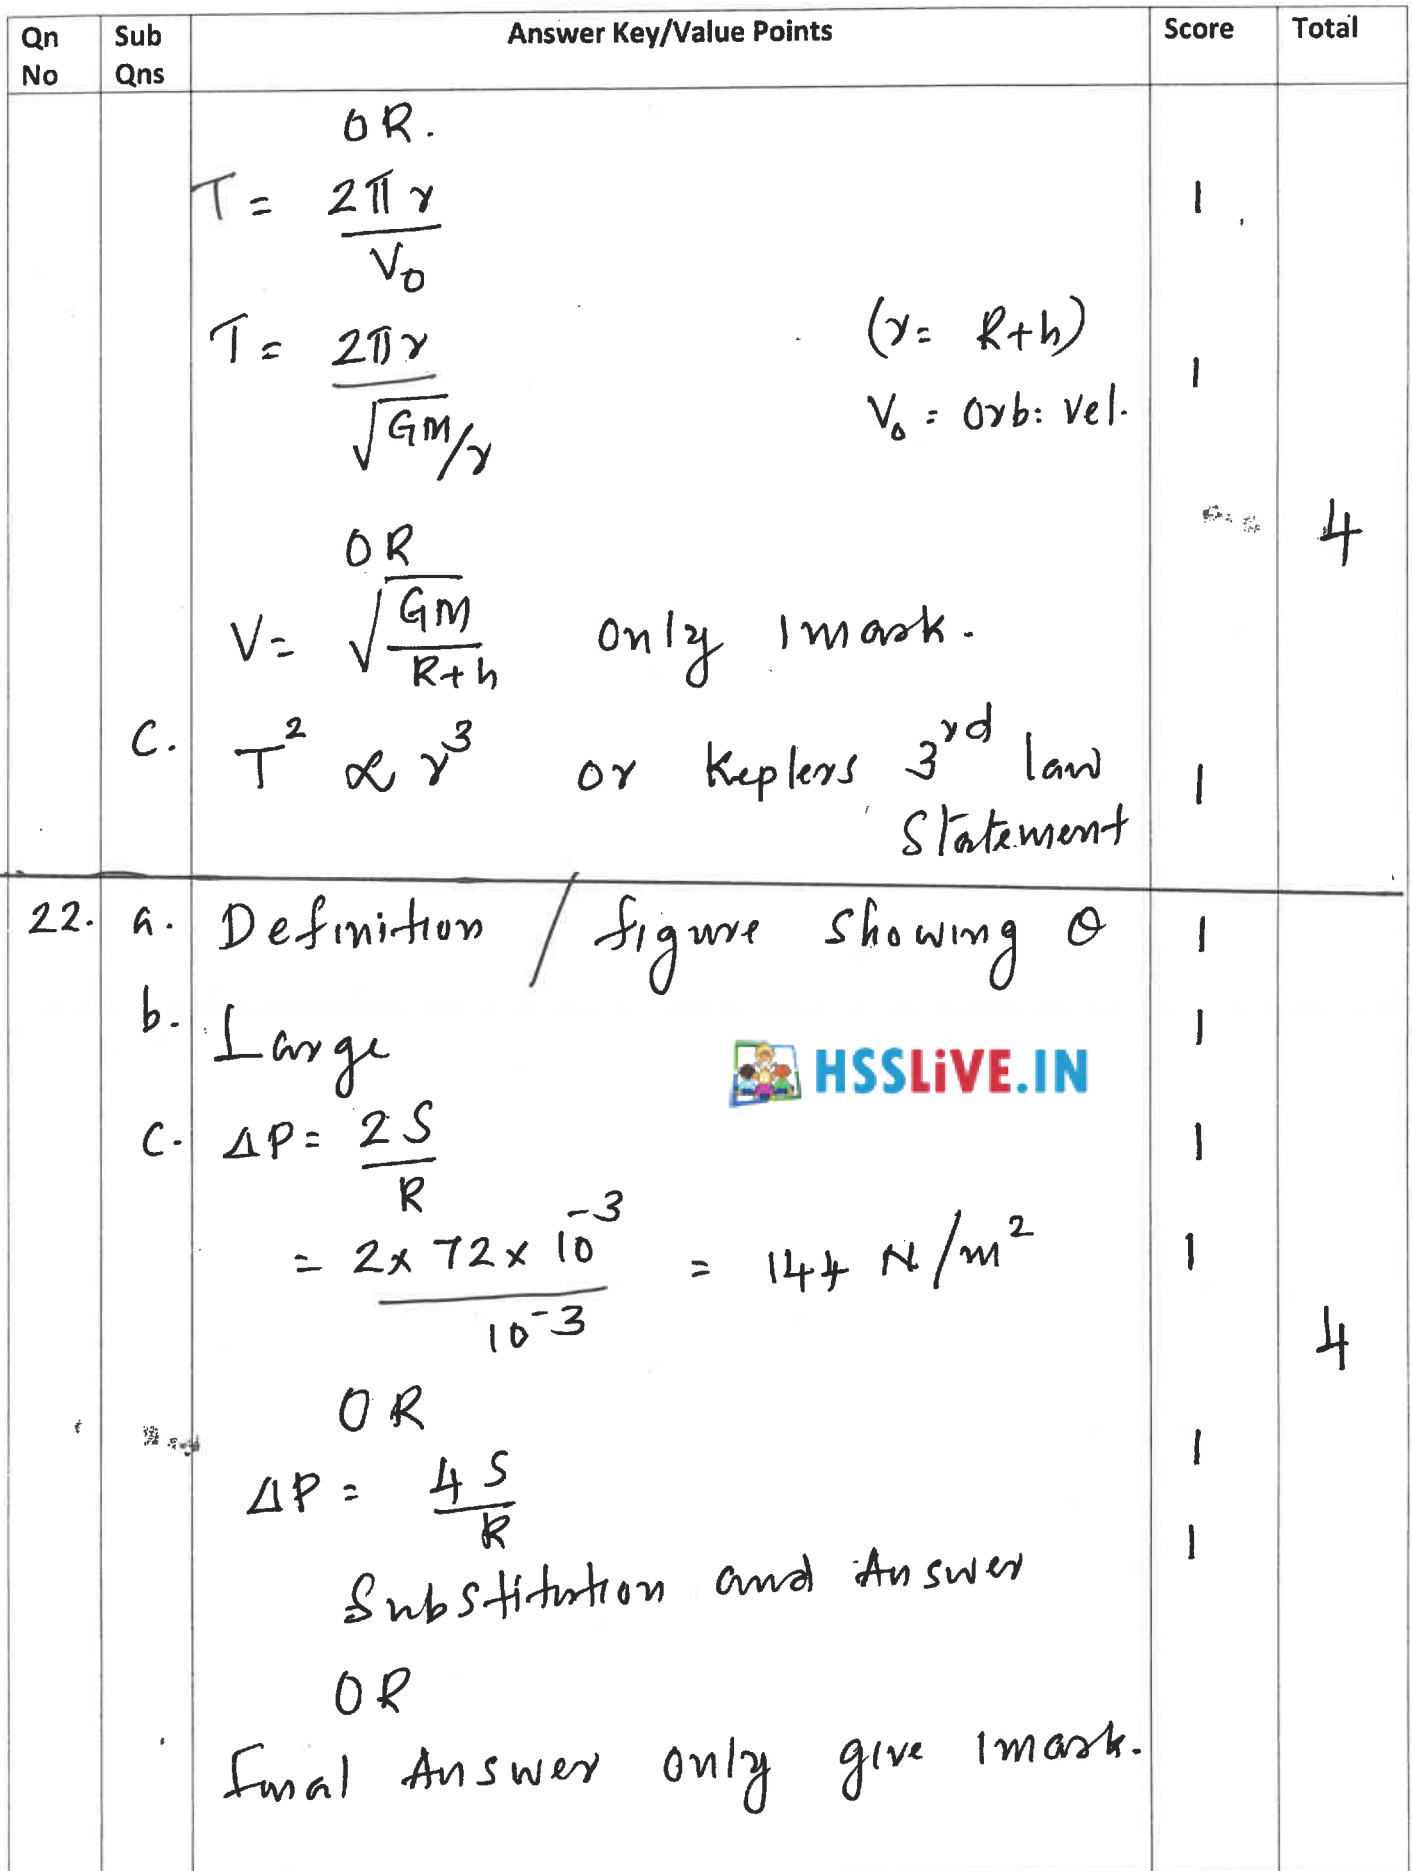 Qn No Sub Qns Answer Key/Value Points Score Total
OR.
T = 2πr / V₀ 1
T = 2πr / √GM/r (r = R+h) 1
V₀ = Orb: Vel.
4
OR
V = √GM / R+h only 1 mark.
C. T² ∝ r³ or Keplers 3rd law 1
Statement
22. a. Definition / figure showing θ 1
b. Large 1
HSSLiVE.IN
C. ΔP = 2S / R 1
= 2 x 72 x 10⁻³ / 10⁻³ = 144 N/m² 1
4
OR
ΔP = 4S / R 1
Substitution and Answer 1
OR
final Answer only give 1 mark.